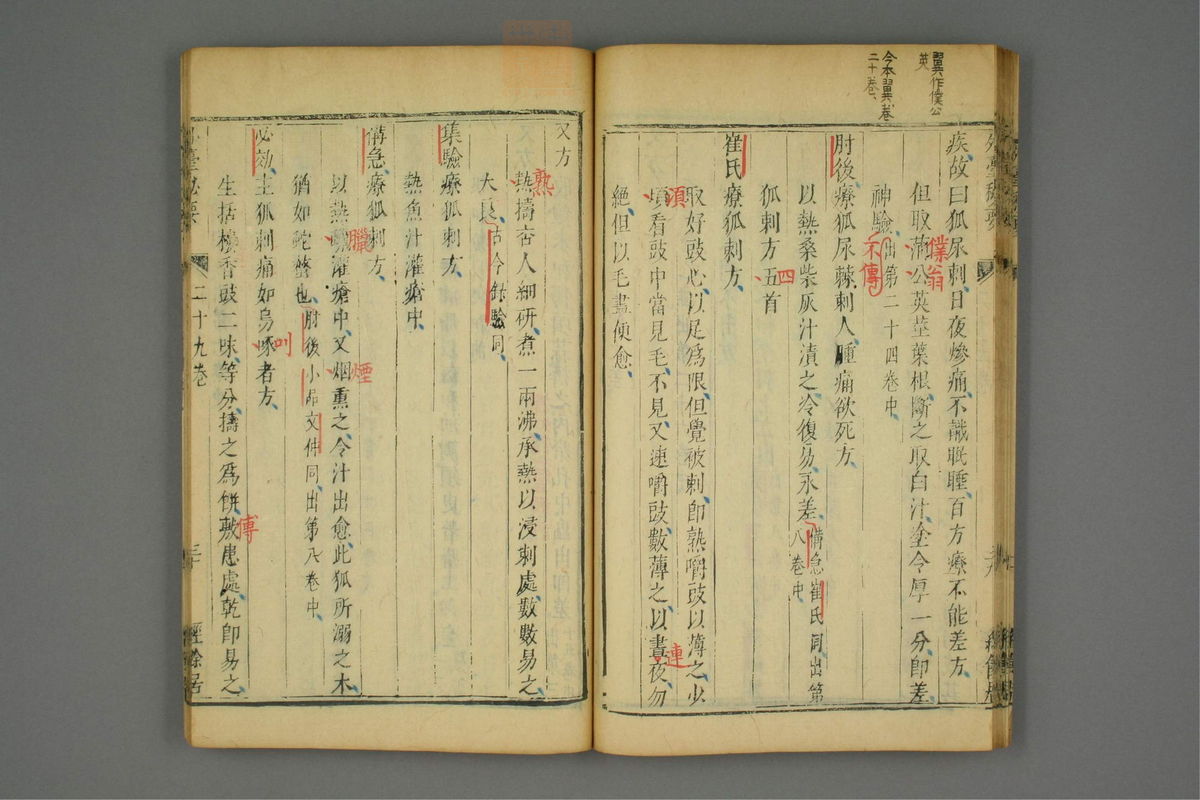 翼作僕公
英
今本翼卷
二十卷
疾故曰狐尿刺日夜慘痛不識眠睡百方療不能差方
但取蒲公英莖葉根斷之取白汁塗令厚一分即差
僕翁
神驗出第二十四卷中
不傳
肘後療狐尿蕀刺人腫痛欲死方
以熱桑柴灰汁漬之冷復易永差備急崔氏同出第
八卷中
狐刺方五首
四
崔氏療狐刺方
取好豉心以足為限但覺被刺即熟嚼豉以薄之少
須
頃看豉中當見毛不見又速嚼豉數薄之以晝夜勿
連
絕但以毛盡便愈
又方
熟
熱擣杏人細研煮一兩沸承熱以浸刺處數數易之
大良古今錄驗同
集驗療狐刺方
熱魚汁灌瘡中
備急療狐刺方
以熱蠟灌瘡中又烟熏之令汁出愈此狐所溺之木
臘
煙
猶如蛇螫也肘後小品文仲同出第八卷中
必効主狐刺痛如鳥啄者方
叫
生括樓香豉二味等分擣之為餅敷患處乾即易之
傅
外臺秘要
二十九卷
三十
經餘居